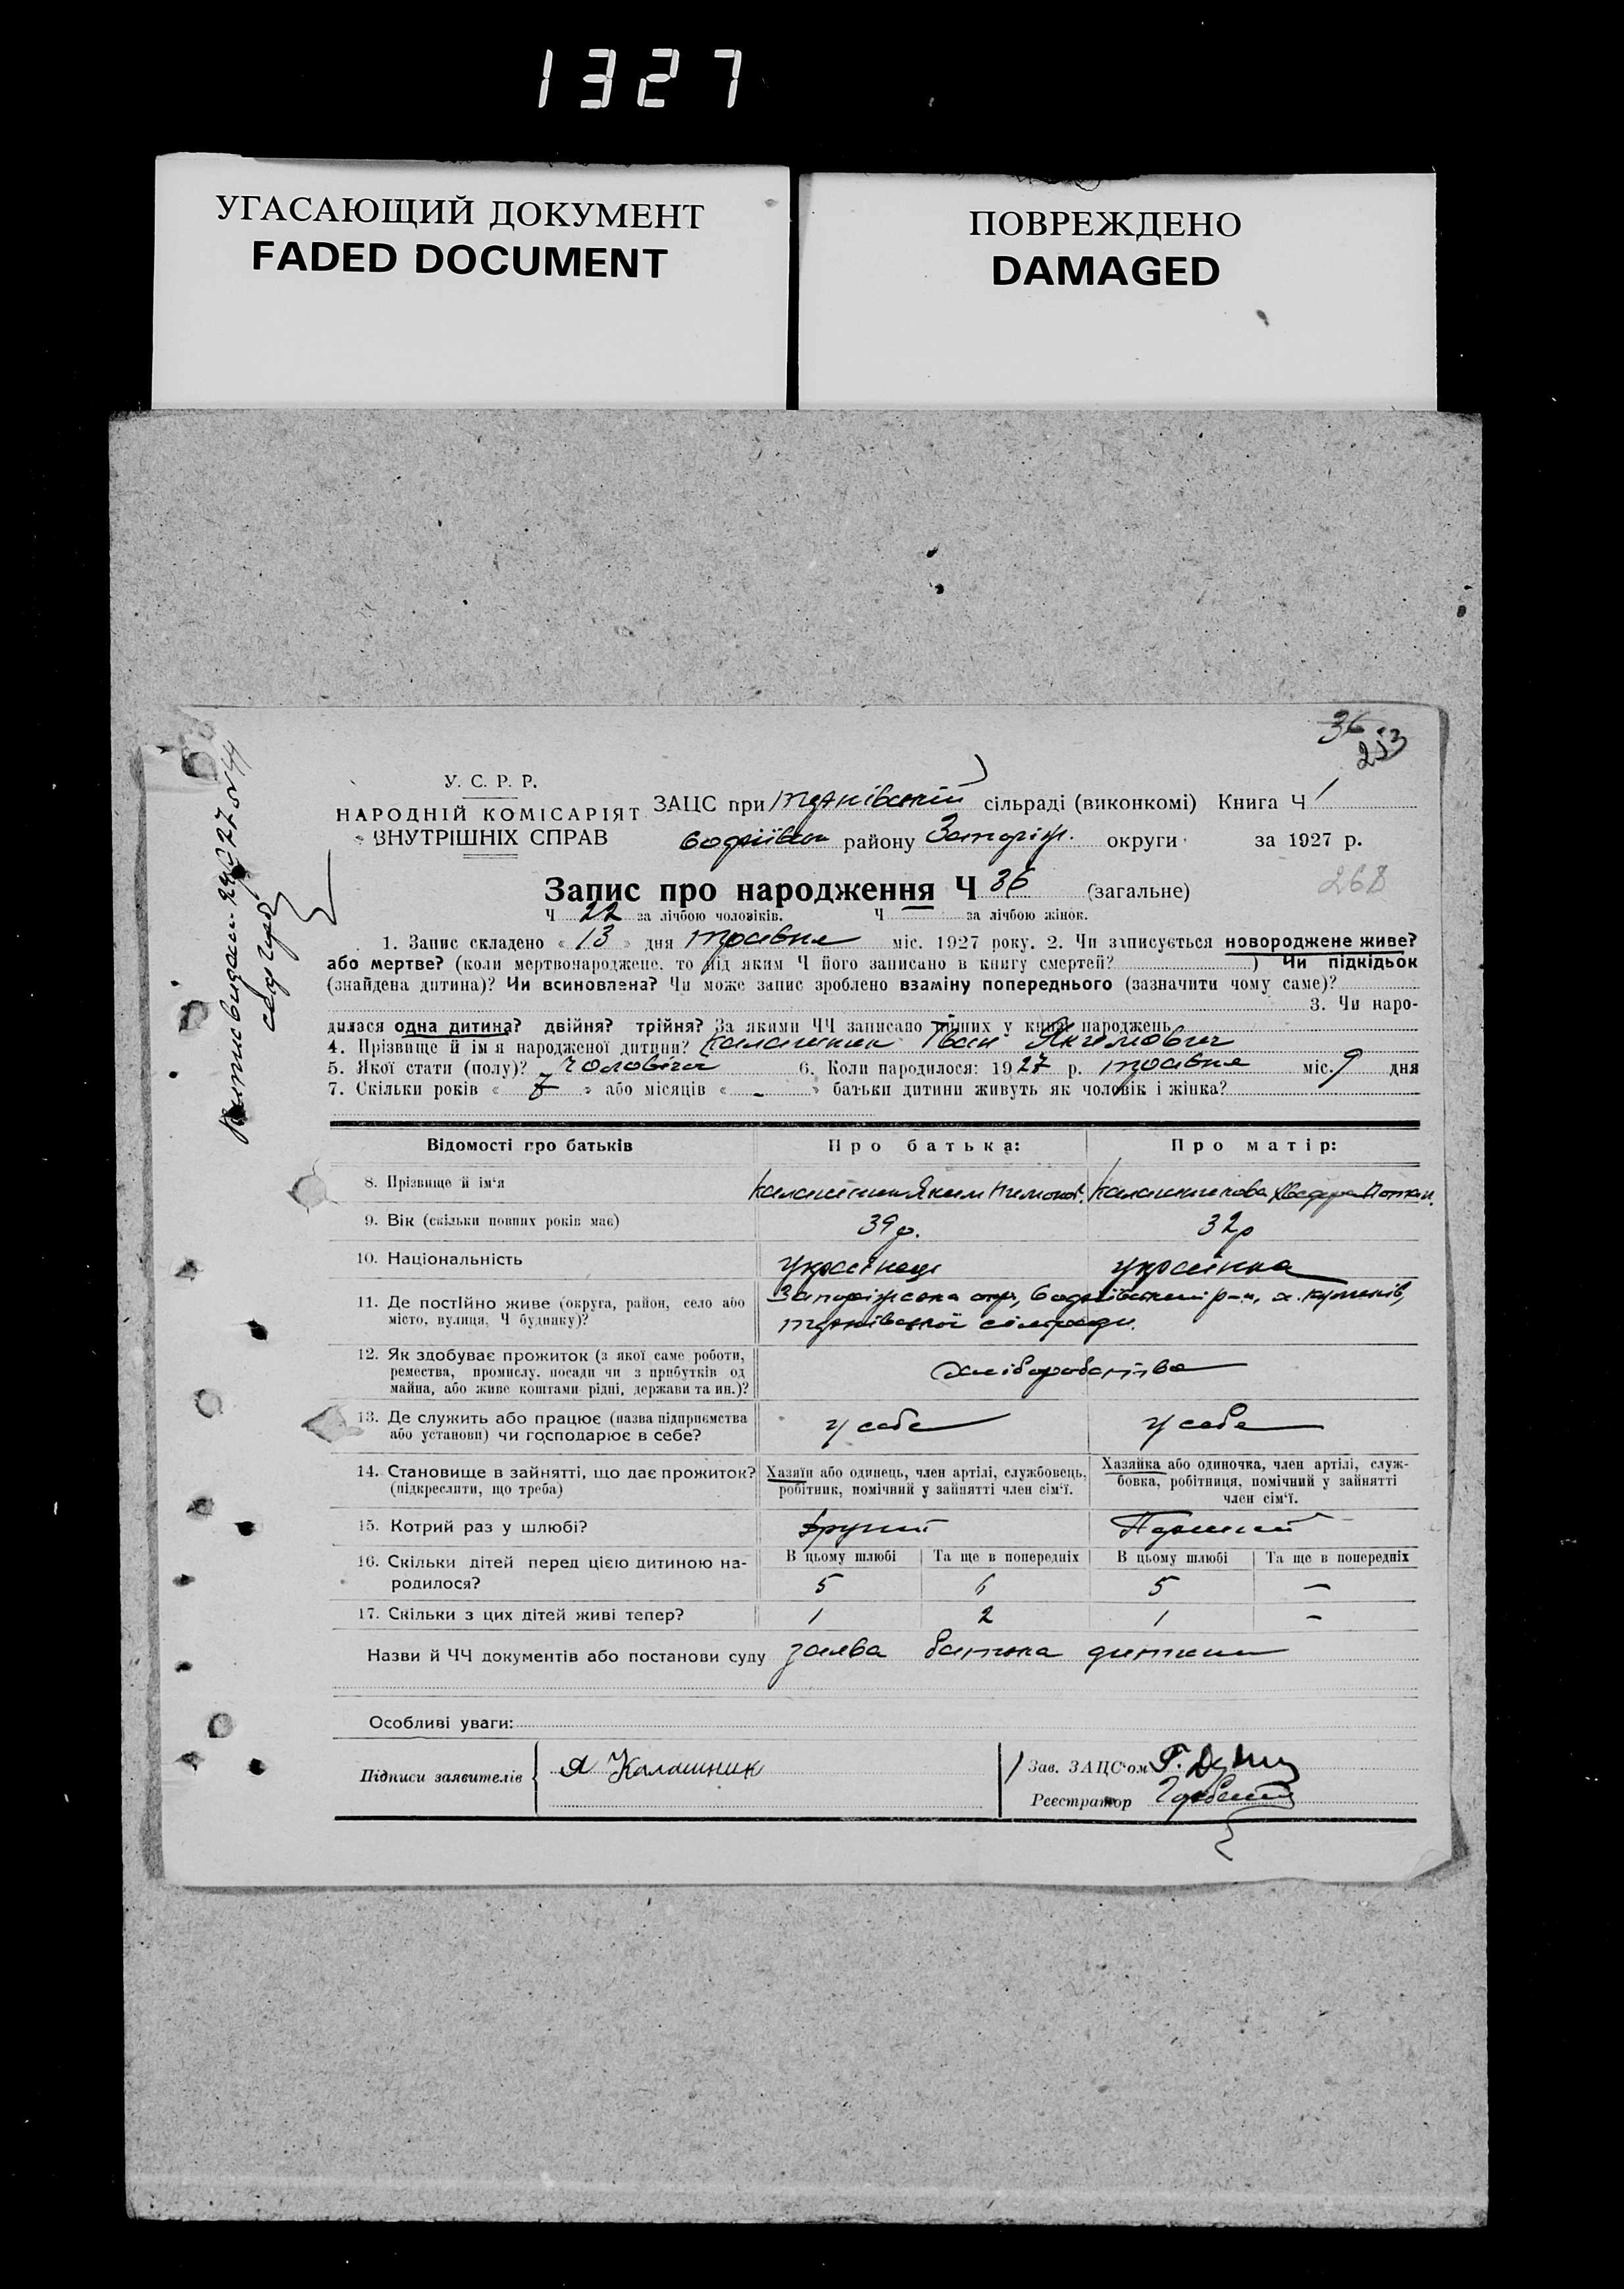 1327
УГАСАЮЩИЙ ДОКУМЕНТ
FADED DOCUMENT
ПОВРЕЖДЕНО
DAMAGED
36
253
У. С. Р. Р.
НАРОДНІЙ КОМІСАРІЯТ
ВНУТРІШНІХ СПРАВ
ЗАЦС при сільраді (виконкомі) Книга Ч 1
району Запоріж. округи за 1927 р.
Запис про народження Ч 36 (загальне)
268
Ч 22 за лічбою чоловіків. Ч за лічбою жінок.
1. Запис складено « 13 » дня травня міс. 1927 року. 2. Чи записується новороджене живе?
або мертве? (коли мертвонароджене, то під яким Ч його записано в книгу смертей? ) Чи підкідьок
(знайдена дитина)? Чи всиновлена? Чи може запис зроблено взаміну попереднього (зазначити чому саме)?
3. Чи наро-
дилася одна дитина? двійня? трійня? За якими ЧЧ записано інших у книзі народжень
4. Прізвище й ім'я народженої дитини? Калашник Іван Якимович
5. Якої стати (полу)? Чоловіча 6. Коли народилося: 1927 р. травня міс. 9 дня
7. Скільки років « 7 » або місяців « - » батьки дитини живуть як чоловік і жінка?
Відомості про батьків Про батька: Про матір:
8. Прізвище й ім'я Калашник Яким Калашникова
9. Вік (скільки повних років має) 39 р. 32 р
10. Національність українець українка
11. Де постійно живе (округа, район, село або
місто, вулиця, Ч будинку)?
Запоріжська окр,
сільради.
12. Як здобуває прожиток (з якої саме роботи,
ремества, промислу, посади чи з прибутків од
майна, або живе коштами рідні, держави та ин.)?
Хліборобство
13. Де служить або працює (назва підприємства
або установи) чи господарює в себе?
у себе у себе
14. Становище в зайнятті, що дає прожиток?
(підкреслити, що треба)
Хазяїн або одинець, член артілі, службовець,
робітник, помічний у зайнятті член сім'ї.
Хазяйка або одиночка, член артілі, служ-
бовка, робітниця, помічний у зайнятті
член сім'ї.
15. Котрий раз у шлюбі? другий Перший
16. Скільки дітей перед цією дитиною на-
родилося?
В цьому шлюбі Та ще в попередніх В цьому шлюбі Та ще в попередніх
5 6 5 —
17. Скільки з цих дітей живі тепер? 1 2 1 —
Назви й ЧЧ документів або постанови суду заява батька дитини
Особливі уваги:
Підписи заявителів Я Калашник
Зав. ЗАЦС'ом
Реєстратор